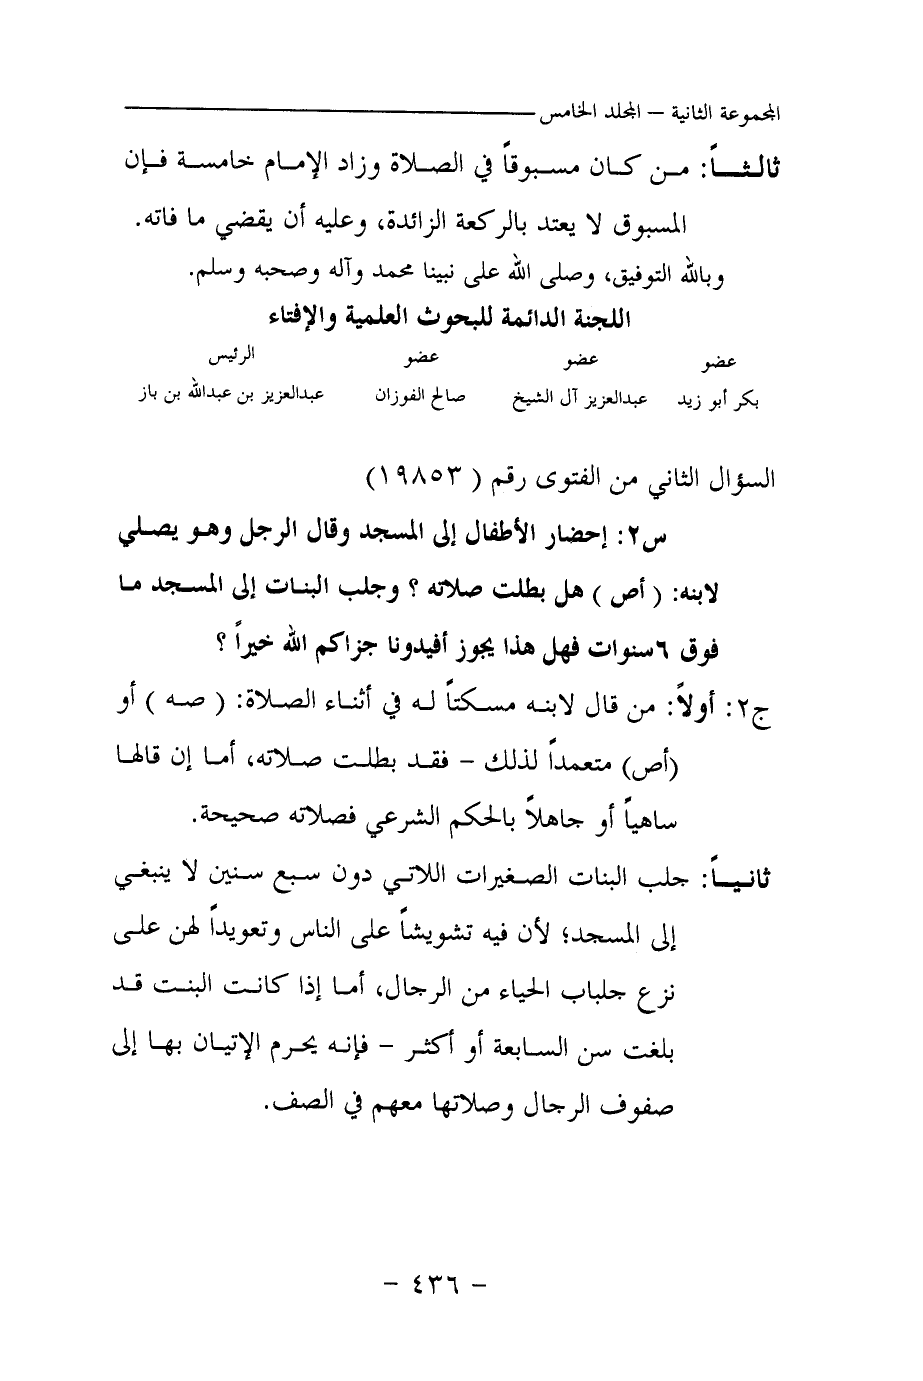 المجموعة الثانية – المجلد الخامس
ثالثـــاً: مـن كـان مسـبوقاً في الصـلاة وزاد الإمـام خامسـة فـإن
المسبوق لا يعتد بالركعة الزائدة، وعليه أن يقضي ما فاته.
وبالله التوفيق، وصلى الله على نبينا محمد وآله وصحبه وسلم.
اللجنة الدائمة للبحوث العلمية والإفتاء
عضو عضو عضو الرئيس
بكر أبو زيد عبدالعزيز آل الشيخ صالح الفوزان عبدالعزيز بن عبدالله بن باز
السؤال الثاني من الفتوى رقم ( ١٩٨٥٣)
س٢: إحضار الأطفال إلى المسجد وقال الرجل وهـو يصـلي
لابنه: ( أص ) هل بطلت صلاته ؟ وجلب البنـات إلى المسـجد مـا
فوق ٦سنوات فهل هذا يجوز أفيدونا جزاكم الله خيراً ؟
ج٢: أولاً: من قال لابنـه مسـكتاً لـه في أثنـاء الصـلاة: ( صـه ) أو
(أص) متعمداً لذلك – فقـد بطلـت صـلاته، أمـا إن قالهـا
ساهياً أو جاهلاً بالحكم الشرعي فصلاته صحيحة.
ثانيـاً: جلب البنات الصـغيرات اللاتـي دون سـبع سـنين لا ينبغـي
إلى المسجد؛ لأن فيه تشويشاً على الناس وتعويداً لهن علـى
نزع جلباب الحياء من الرجال، أمـا إذا كانـت البنـت قـد
بلغت سن السـابعة أو أكثـر – فإنـه يحـرم الإتيـان بهـا إلى
صفوف الرجال وصلاتها معهم في الصف.
– ٤٣٦ –